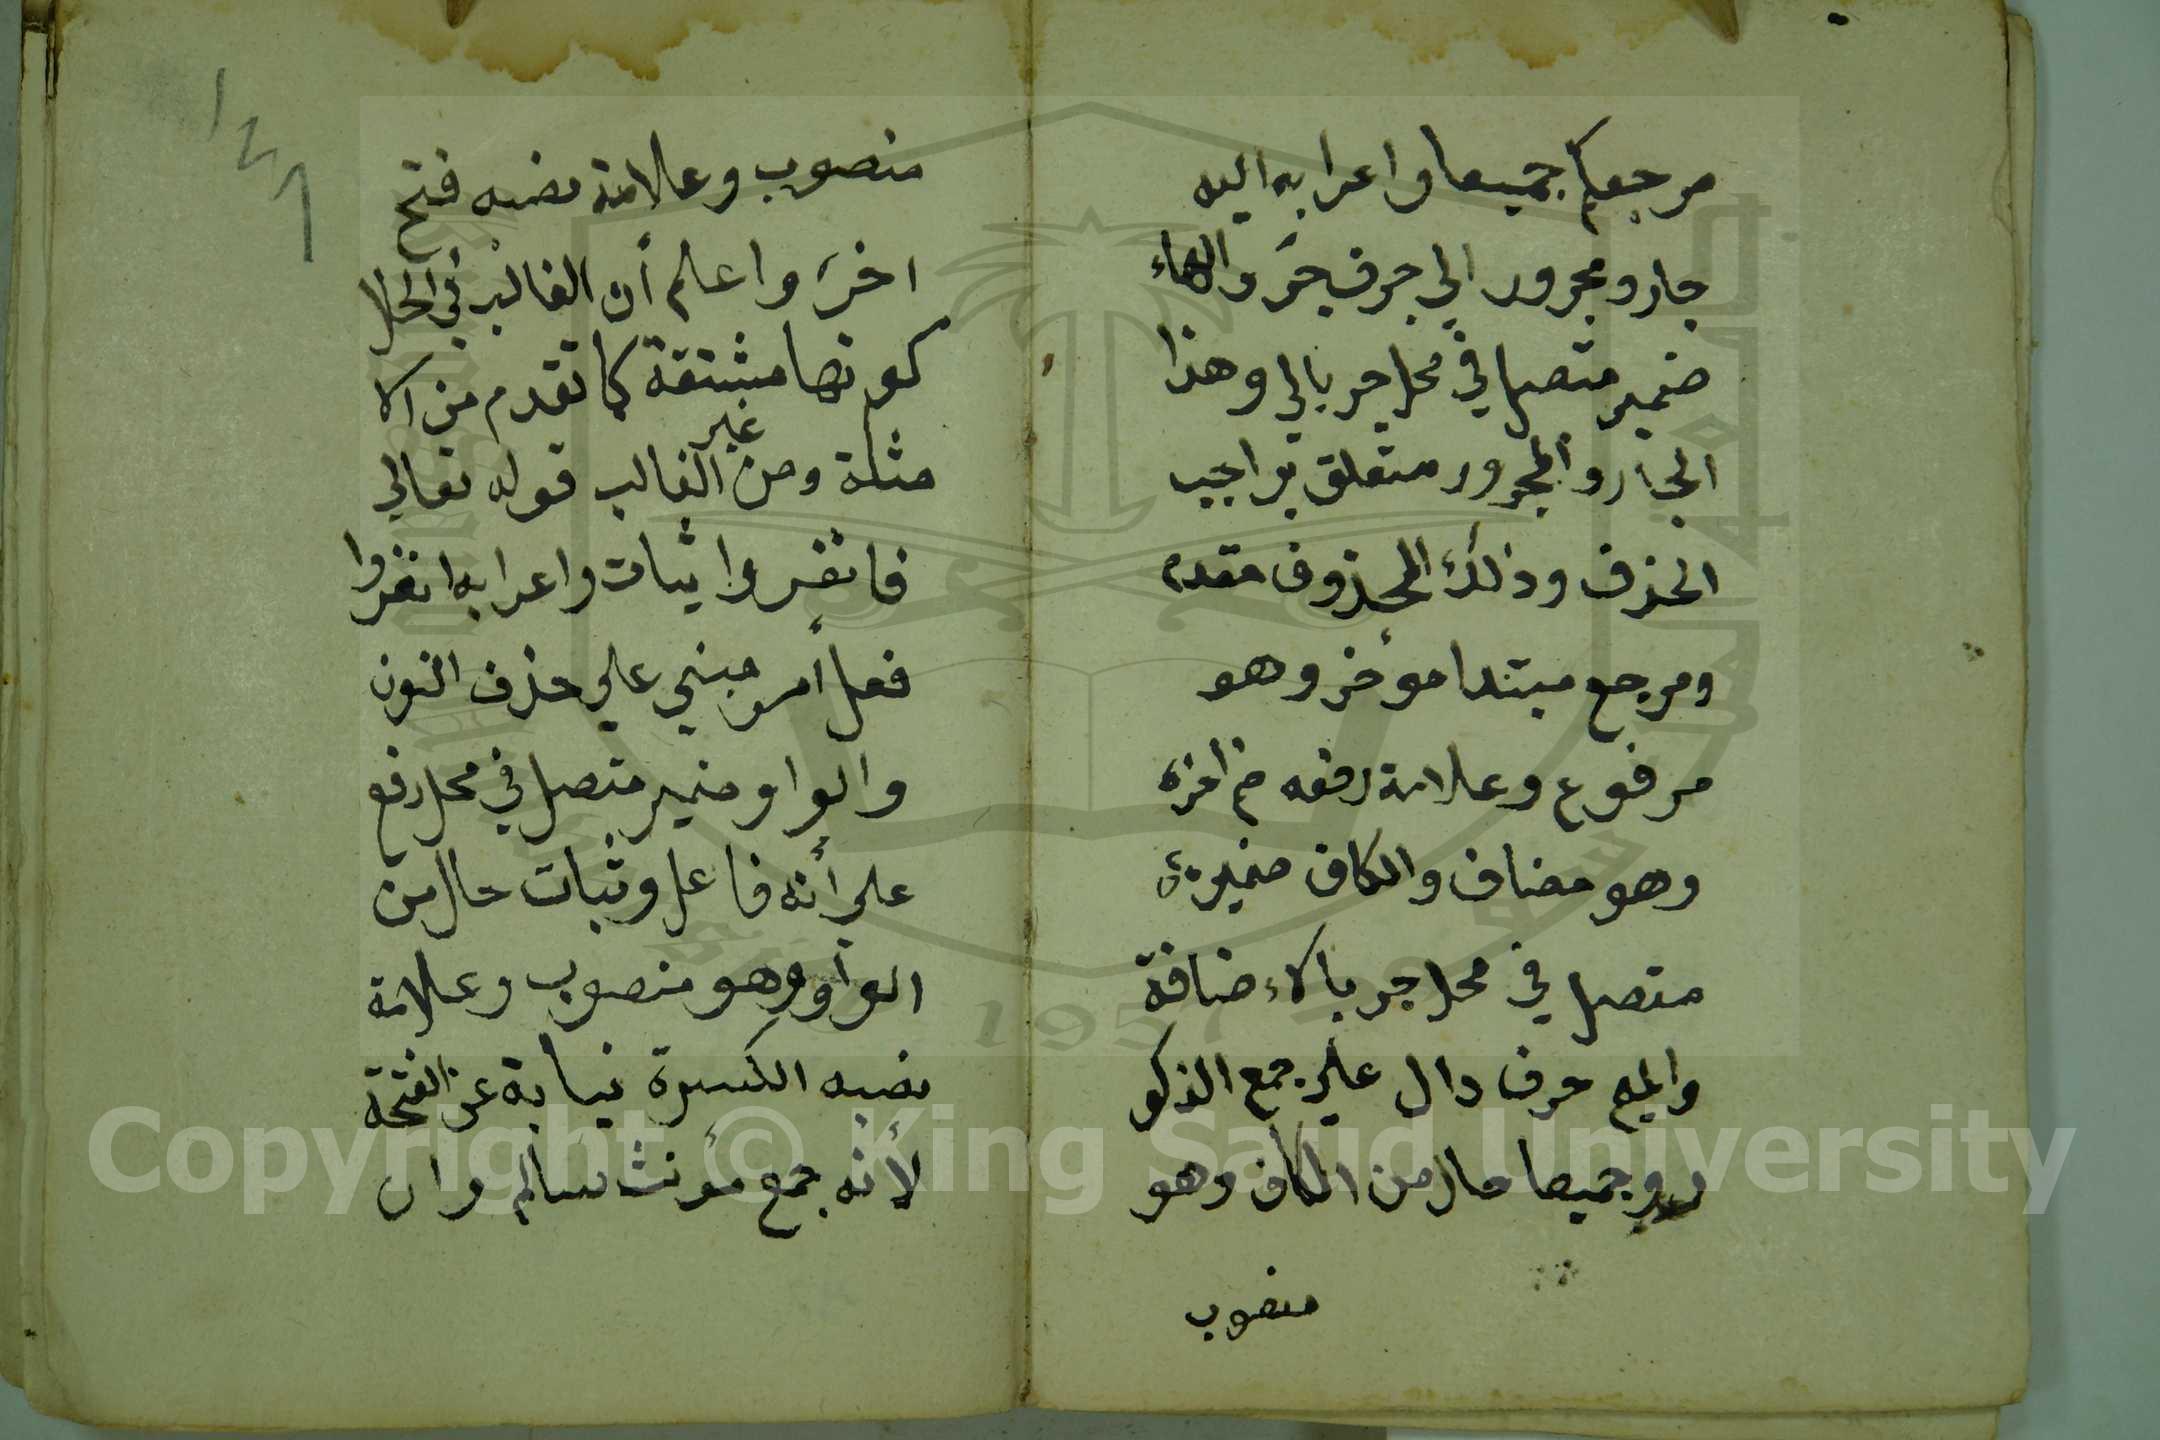 مرجعكم جميعا واعرابه اليه
جار ومجرور الي حرف جر والهاء
ضمير متصل في محل جر بالي وهذا
الجار والمجرور متعلق بواجب
الحذف وذلك المحذوف مقدم
ومرجع مبتدا مؤخر وهو
مرفوع وعلامة رفعه ضم اخره
وهو مضاف والكاف ضمير
متصل في محل جر بالاءضافة
والميم حرف دال علي جمع الذكو
ر وجميعا حال من الكاف وهو
منصوب
منصوب وعلامة نصبه فتح
اخره واعلم أن الغالب في الحال
كونها مشتقة كما تقدم من الا
مثلة ومن غير الغالب قوله تعالي
فانفروا ثبات واعرابه انفروا
فعل أمر مبني علي حذف النون
والواو ضمير متصل في محل رفع
علي أنه فاعل وثبات حال من
الواو وهو منصوب وعلامة
نصبه الكسرة نيابة عن الفتحة
لأنه جمع مؤنث سالم وان
1957
Copyright © King Saud University